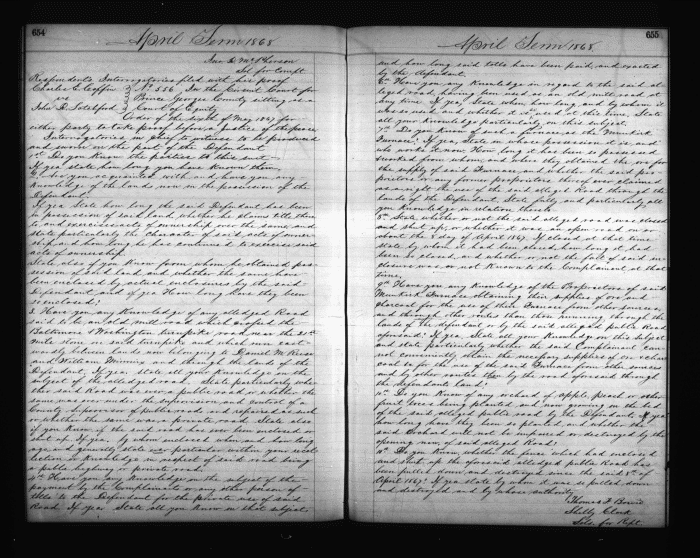 654
April Term 1868
Jno. D. McPherson
Sol for Compt
Respondent's Interrogatories filed with his proof
Charles C. Coffin
vs
No 556 In the Circuit Court for
Prince Georges County sitting as a
Court of Equity
Order of the day of May 1867 for
either party to take proof before a Justice of the peace
Interrogatories to Witnesses to be produced
and sworn on the part of the Defendant
1st Do you know the parties to this suit
If yea state how long you have known them,
2. Are you acquainted with or have you any
Knowledge of the lands now in the possession of the
Defendant.
If yea state how long the said Defendant has been
in possession of said land, whether he claims title there
to and exercises acts of ownership over the same and
State particularly the character of said acts of owner-
ship and how long he has continued to exercise said
acts of ownership.
State also if you know from whom he obtained pos-
session of said land and whether the same have
been enclosed by actual enclosures by the said
Defendant and if yea How long have they been
so enclosed?
3. Have you any Knowledge of any alledged Road
said to be an old mud road which crossed the
Baltimore & Washington turnpike road near the 21st
mile stone on said turnpike and which runs east-
wardly between lands now belonging to Daniel M
and William and through the lands of the
Defendant, If yea, state all your Knowledge on the
subject of the alledged road. State particularly whe-
ther said Road was ever a public road or whether the
same was ever under the supervision and control of a
County Supervisor of public roads and repaired as such
or whether the same was a private road. State also
if you know if the said road has ever been enclosed or
shut up. If yea, by whom enclosed when and how long
ago and generally state any particular within your recol-
lection or Knowledge in respect of said road being
a public highway or private road.
4th Have you any Knowledge on the subject of the
payment by the Complainants or any other person of
tolls to the Defendant for the private use of said
Road. If yea State all you know in that subject
655
April Term 1868
and how long said tolls have been paid, and exacted
by the defendant.
6th Have you any Knowledge in regard to the said al-
leged road, having been used as an old mill road at
any time. If yea, State when how long and by whom it
was used and whether it is used at this time, State
all your knowledge particularly on this subject
7th Do you know of such a furnace as the Muirkirk
Furnace? If yea, State in whose possession it is, and
who works it now. How long it has been so possessed
& worked from whom, and where they obtained the ore for
the supply of said Furnace and whether the said pro-
prietors or any former proprietors have ever claimed
as a right the use of the said alleged Road through the
lands of the Defendant. State fully and particularly all
you Know in relation thereto.
8th State whether or not the said alleged road was closed
and shut up, or whether it was an open road on or
about the 8 day of April 1867. If closed at that time
state by whom it had been closed, how long it had
been so closed, and whether or not the fact of said in-
closure was or not Known to the Complainant at that
time,
9th Have you any Knowledge of the Proprietors of said
Muirkirk Furnace obtaining their supplies of ore and
charcoal for the use of their Furnace from other sources,
and through other routes than those running through the
lands of the Defendant or by the said alleged public Road
aforesaid? If yea, State all your Knowledge on this subject
and state particularly whether the said Complainant can-
not conveniently obtain the necessary supplies of ore & char
coal &c for the use of the said Furnace from other sources
and by other routes than by the road aforesaid through
the defendants land?
10th Do you Know of any orchard of apple, peach or other
fruit trees being planted and now growing on the bed
of the said alleged public road by the Defendant. If yea
how long have they been so planted, and whether the
said Orchard will not be impaired or destroyed by the
opening anew of said alleged Road?
11th Do you Know whether the fence which had enclosed
and shut up the aforesaid alleged public Road has
been pulled down and destroyed since the said 8th of
April 1867? If yea state by whom it was so pulled down
and destroyed and by whose authority
Thomas F Bowie
Shelby Clark
Sols for Respt